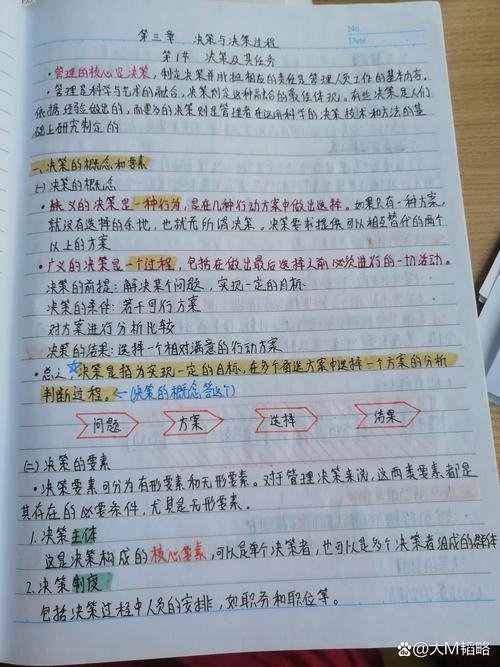 No.
Date
第三章 决策与决策过程
第1节 决策及其任务
·管理的核心是决策,制定决策并承担相应的责任是管理人员工作的基本内容。
·管理是科学与艺术的融合,决策则是这种融合的最佳体现。有些决策是人们
依据经验做出的,而更多的决策则是管理者在运用科学的决策技术和方法的基
础上研究制定的
一、决策的概念和要素
(一)决策的概念
·狭义的决策是一种行为,是在几种行动方案中做出选择。如果只有一种方案,
就没有选择的余地,也就无所谓决策。决策要求提供可以相互替代的两个
以上的方案
·广义的决策是一个过程,包括在做出最后选择之前必须进行的一切活动。
决策的前提:解决某个问题,实现一定的目标
决策的条件:若干可行方案
对方案进行分析比较
决策的结果:选择一个相对满意的行动方案
·总之☆决策是指为实现一定的目标,在多个备选方案中选择一个方案的分析
判断过程。←(决策的概念答这个)
问题 方案 选择 结果
(二)决策的要素
·决策要素可分为有形要素和无形要素。对于管理决策来说,这两类要素都是
其存在的必要条件,尤其是无形要素。
1.决策主体
这是决策构成的核心要素,可以是单个决策者,也可以是多个决策者组成的群体
2.决策制度
包括决策过程中人员的安排,如职务和职位等。
@大M韬略